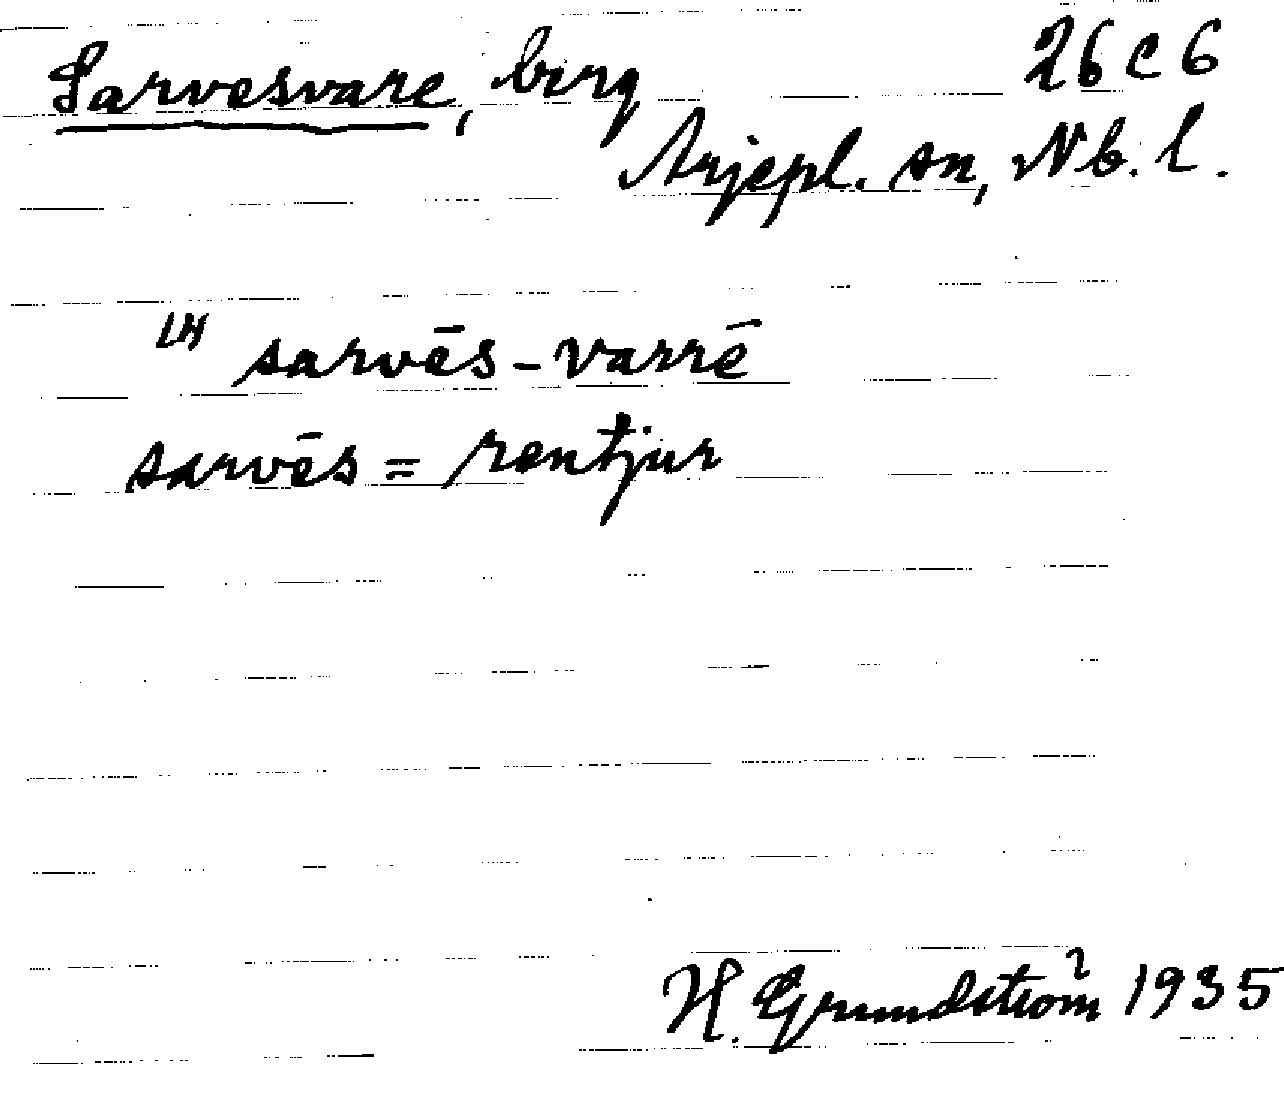 Sarvesvare, berg 26 C 6
Arjepl. sn, Nb. l.
LH sarvēs-varrē
sarvēs = rentjur
H. Grundström 1935